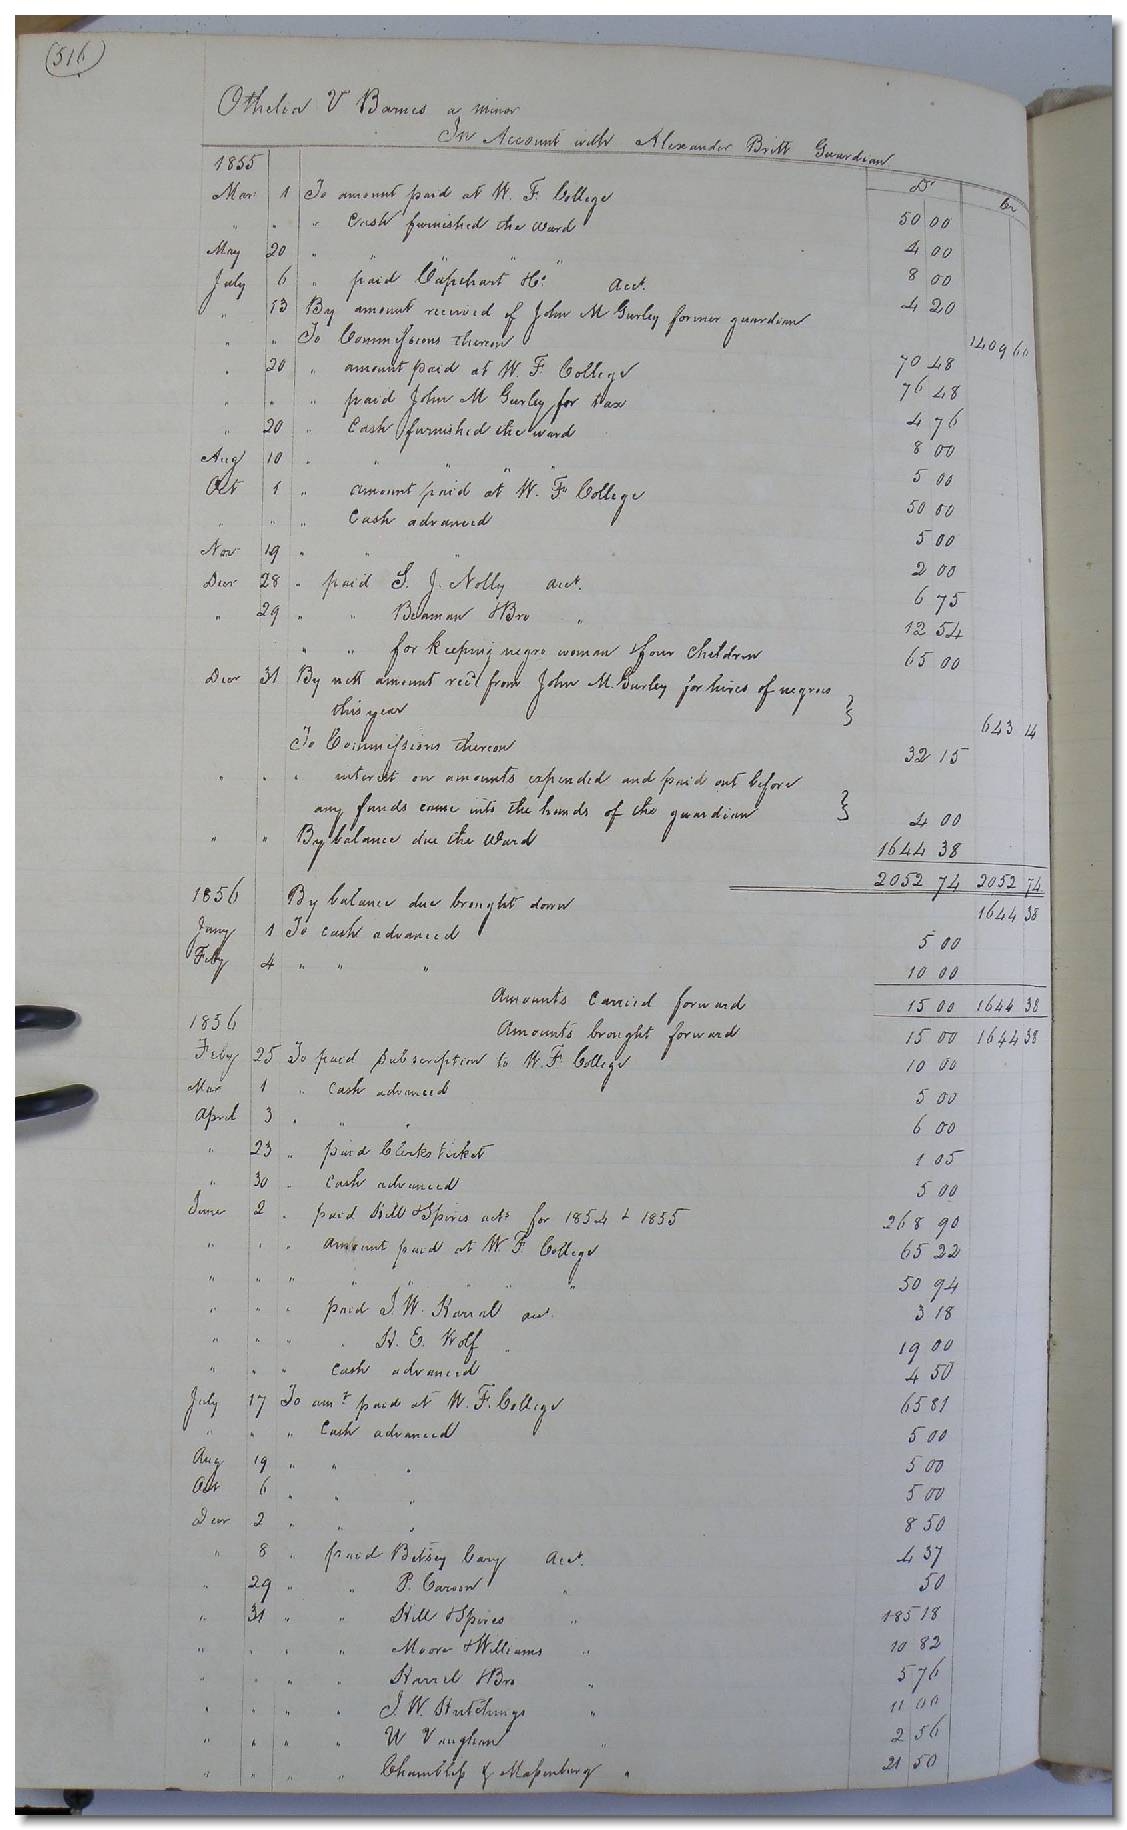 (516)
Othelia V Barnes a minor
In Account with Alexander Britt Guardian
1855 Dr Cr
Mar 1 To amount paid at W. F. College 50 00
" " " Cash furnished the ward 4 00
May 20 " " " " 8 00
July 6 " paid Capehart & Co. acct. 4 20
" 13 By amount received of John M Gurley former guardian 1409 60
" " To Commissions thereon 70 48
" 20 " amount paid at W. F. College 76 48
" " " paid John M Gurley for tax 4 76
" 20 " Cash furnished the ward 8 00
Aug 10 " " " " " 5 00
Oct 1 " amount paid at W. F. College 50 00
" " " Cash advanced 5 00
Nov 19 " " " 2 00
Decr 28 " paid S. J. Nolly acct. 6 75
" 29 " " Beaman & Bro " 12 54
" " for keeping negro woman & four children 65 00
Decr 31 By nett amount recd from John M. Gurley for hires of negroes
this year 643 14
To Commissions thereon 32 15
" " " interest on amounts expended and paid out before
any funds came into the hands of the guardian 4 00
" " By balance due the ward 1644 38
2052 74 2052 74
1856 By balance due brought down 1644 38
Jany 1 To cash advanced 5 00
Feby 4 " " " 10 00
Amounts carried forward 15 00 1644 38
1856 Amounts brought forward 15 00 1644 38
Feby 25 To paid Subscription to W. F. College 10 00
Mar 1 " cash advanced 5 00
April 3 " " " 6 00
" 23 " paid Clerks ticket 1 05
" 30 " cash advanced 5 00
June 2 " paid Hill & Spires acts for 1854 & 1855 268 90
" " " amount paid at W. F. College 65 22
" " " " " " " 50 94
" " " paid J. W. acct. 3 18
" " " " H. E. Wolf " 19 00
" " " cash advanced 4 50
July 17 To amt paid at W. F. College 65 81
" " " Cash advanced 5 00
Aug 19 " " " 5 00
Oct 6 " " " 5 00
Decr 2 " " " 8 50
" 8 " paid Betsey Cary acct. 4 37
" 29 " " P. Carson " 50
" 31 " " Hill & Spires " 185 18
" " " " Moore & Williams " 10 82
" " " " Harrel & Bro " 5 76
" " " " J. W. Hutchings " 11 00
" " " " U Vaughan " 2 56
" " " " & " 21 50